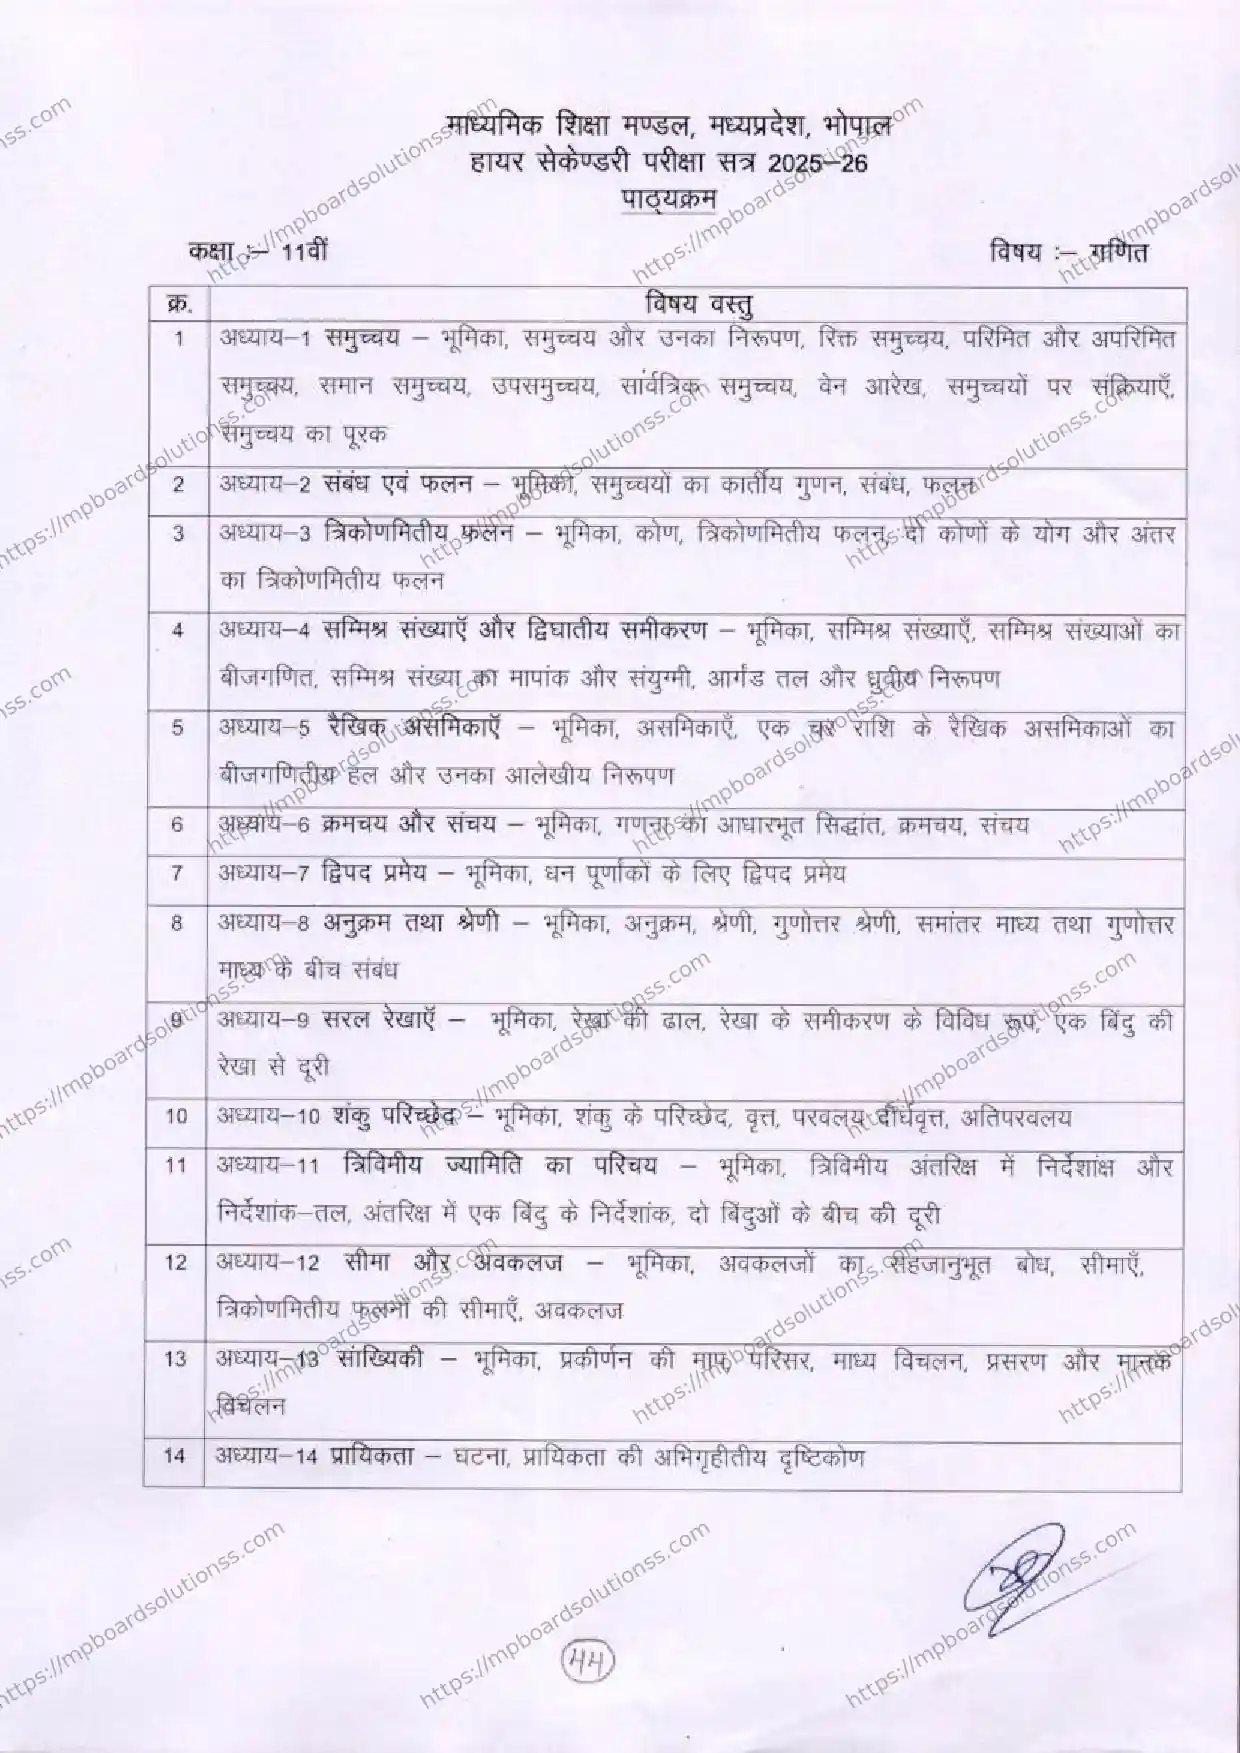 माध्यमिक शिक्षा मण्डल, मध्यप्रदेश, भोपाल
हायर सेकेण्डरी परीक्षा सत्र 2025–26
पाठ्यक्रम
कक्षा :– 11वीं विषय :– गणित
क्र. विषय वस्तु
1 अध्याय–1 समुच्चय – भूमिका, समुच्चय और उनका निरूपण, रिक्त समुच्चय, परिमित और अपरिमित
समुच्चय, समान समुच्चय, उपसमुच्चय, सार्वत्रिक समुच्चय, वेन आरेख, समुच्चयों पर संक्रियाएँ,
समुच्चय का पूरक
2 अध्याय–2 संबंध एवं फलन – भूमिका, समुच्चयों का कार्तीय गुणन, संबंध, फलन
3 अध्याय–3 त्रिकोणमितीय फलन – भूमिका, कोण, त्रिकोणमितीय फलन, दो कोणों के योग और अंतर
का त्रिकोणमितीय फलन
4 अध्याय–4 सम्मिश्र संख्याऍ और द्विघातीय समीकरण – भूमिका, सम्मिश्र संख्याएँ, सम्मिश्र संख्याओं का
बीजगणित, सम्मिश्र संख्या का मापांक और संयुग्मी, आर्गंड तल और ध्रुवीय निरूपण
5 अध्याय–5 रैखिक असमिकाऍ – भूमिका, असमिकाएँ, एक चर राशि के रैखिक असमिकाओं का
बीजगणितीय हल और उनका आलेखीय निरूपण
6 अध्याय–6 क्रमचय और संचय – भूमिका, गणना का आधारभूत सिद्धांत, क्रमचय, संचय
7 अध्याय–7 द्विपद प्रमेय – भूमिका, धन पूर्णांकों के लिए द्विपद प्रमेय
8 अध्याय–8 अनुक्रम तथा श्रेणी – भूमिका, अनुक्रम, श्रेणी, गुणोत्तर श्रेणी, समांतर माध्य तथा गुणोत्तर
माध्य के बीच संबंध
9 अध्याय–9 सरल रेखाऍ – भूमिका, रेखा की ढाल, रेखा के समीकरण के विविध रूप, एक बिंदु की
रेखा से दूरी
10 अध्याय–10 शंकु परिच्छेद – भूमिका, शंकु के परिच्छेद, वृत्त, परवलय, दीर्घवृत्त, अतिपरवलय
11 अध्याय–11 त्रिविमीय ज्यामिति का परिचय – भूमिका, त्रिविमीय अंतरिक्ष में निर्देशांक्ष और
निर्देशांक–तल, अंतरिक्ष में एक बिंदु के निर्देशांक, दो बिंदुओं के बीच की दूरी
12 अध्याय–12 सीमा और अवकलज – भूमिका, अवकलजों का सहजानुभूत बोध, सीमाएँ,
त्रिकोणमितीय फलनों की सीमाएँ, अवकलज
13 अध्याय–13 सांख्यिकी – भूमिका, प्रकीर्णन की माप, परिसर, माध्य विचलन, प्रसरण और मानक
विचलन
14 अध्याय–14 प्रायिकता – घटना, प्रायिकता की अभिगृहीतीय दृष्टिकोण
44
https://mpboardsolutionss.com